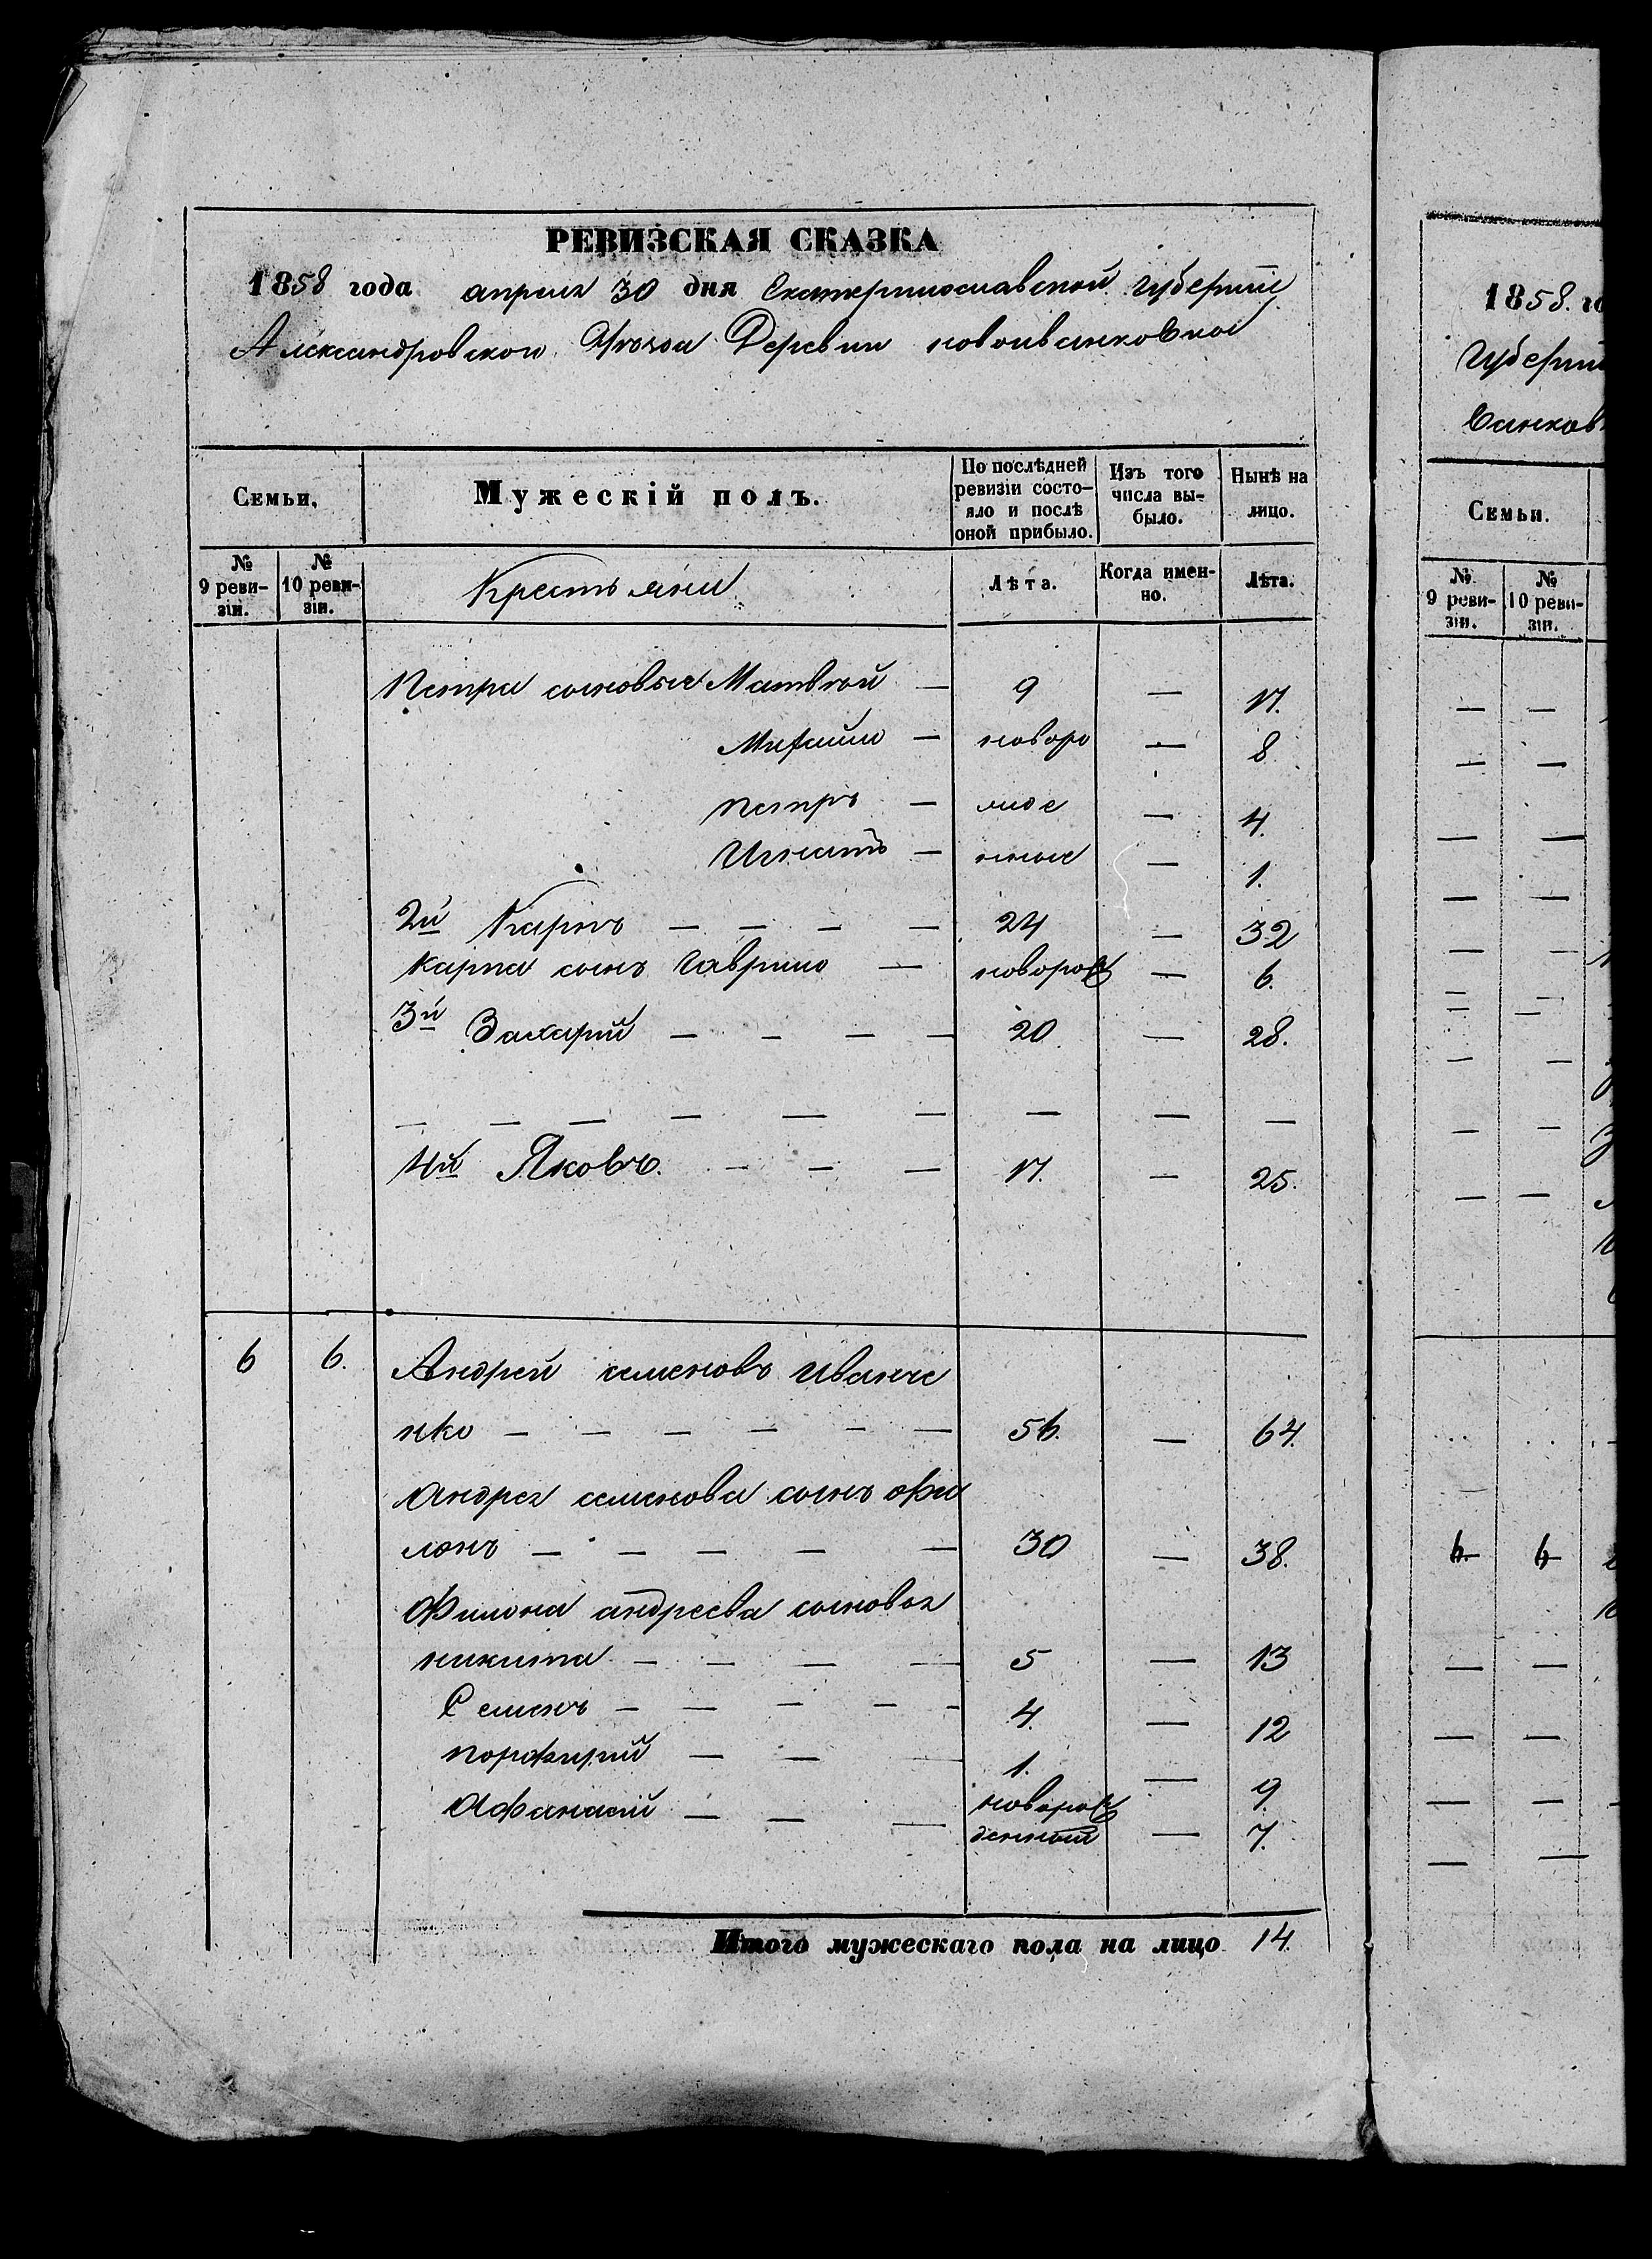 РЕВИЗСКАЯ СКАЗКА
1858 года апреля 30 дня Екатеринославской губернии
Александровскои Уѣзда Деревни новоиванковкой
Семьи. Мужескій полъ. По послѣдней ревизіи состо-яло и послѣ оной прибыло. Изъ того числа вы-было. Нынѣ на лицо.
№ 9 реви-зіи. № 10 реви-зіи. Крестьяни Лѣта. Когда имен-но. Лѣта.
Петра сыновья Матвѣй — 9 — 17.
Михаило — новоро — 8
петръ — жде — 4.
Игнатъ — нные — 1.
2й Карпъ — — — — 24 — 32
карпа сынъ гаврило — новорож — 6.
3й Захарий — — — — 20 — 28.
— — — — — — — — —
4й Яковъ. — — — 17. — 25.
6 6. Андрей семеновъ иванче
нко — — — — — — 56. — 64.
андрея семенова сынъ фи
лонъ — — — — — 30 — 38.
Филона андреева сыновья
никита — — — — 5 — 13
Семенъ — — — — — 4. — 12
порфирий — — — 1. — 9
Афанасий — — — новорож
денный — 7.
Итого мужескаго пола на лицо 14.
1858. го
губерни
ванков
Семьи.
№ 9 реви-зіи. № 10 реви-зіи.
6 6